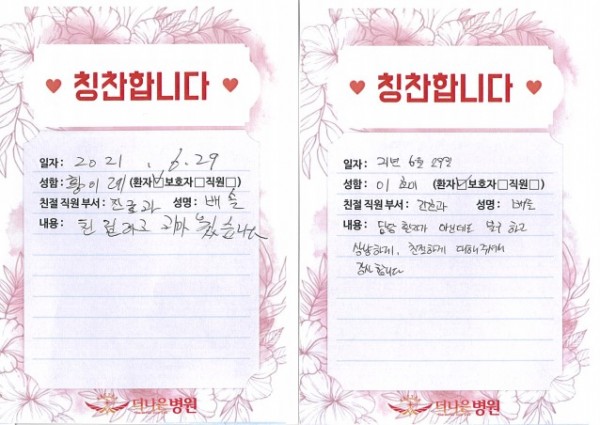 칭찬합니다
일자: 2021. 6. 29
성함: 황이레 (환자☑보호자□직원□)
친절 직원 부서: 진료과 성명: 배솔
내용:
더나은병원
칭찬합니다
일자: 21년 6월 29일
성함: 이 (환자☑보호자□직원□)
친절 직원 부서: 성명: 배솔
내용: 담당 환자가 아닌데도 불구하고
상냥하게, 친절하게 대해주셔서
감사합니다
더나은병원